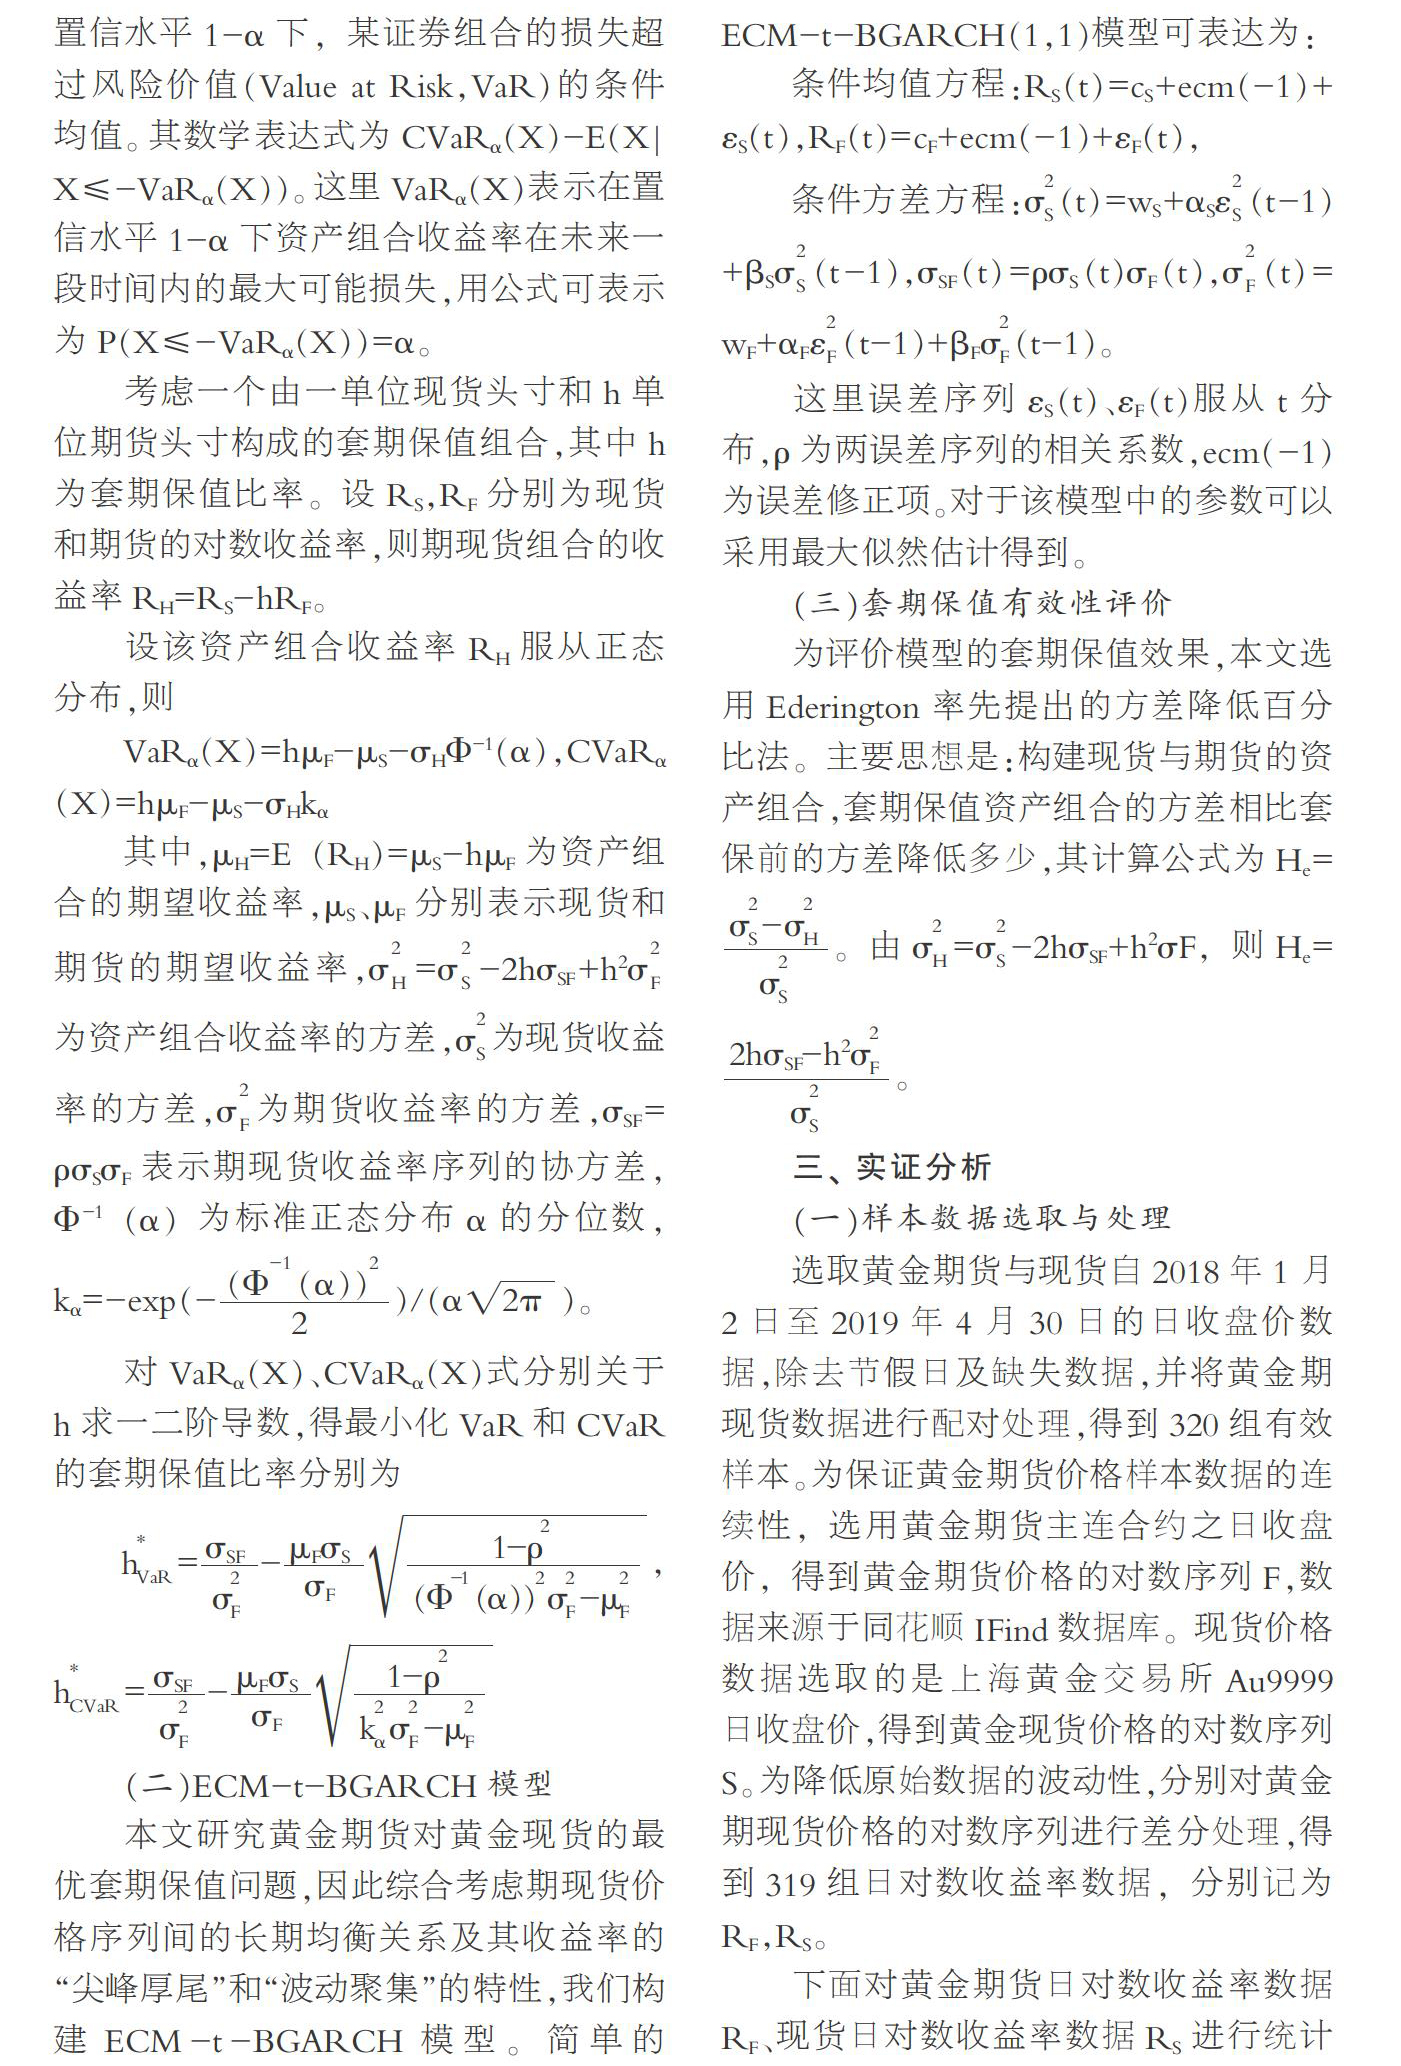 置信水平 1-α 下，某证券组合的损失超
过风险价值(Value at Risk,VaR)的条件
均值。其数学表达式为 CVaRα(X)-E(X|
X≤-VaRα(X))。这里 VaRα(X)表示在置
信水平 1-α 下资产组合收益率在未来一
段时间内的最大可能损失,用公式可表示
为 P(X≤-VaRα(X))=α。
考虑一个由一单位现货头寸和 h 单
位期货头寸构成的套期保值组合,其中 h
为套期保值比率。设 RS,RF 分别为现货
和期货的对数收益率,则期现货组合的收
益率 RH=RS-hRF。
设该资产组合收益率 RH 服从正态
分布,则
VaRα(X)=hμF-μS-σHΦ⁻¹(α),CVaRα
(X)=hμF-μS-σHkα
其中,μH=E (RH)=μS-hμF 为资产组
合的期望收益率,μS、μF 分别表示现货和
期货的期望收益率,σ²H=σ²S-2hσSF+h²σ²F
为资产组合收益率的方差,σ²S为现货收益
率的方差,σ²F为期货收益率的方差,σSF=
ρσSσF 表示期现货收益率序列的协方差,
Φ⁻¹ (α) 为标准正态分布 α 的分位数,
kα=-exp(-(Φ⁻¹(α))²/2)/(α√2π)。
对 VaRα(X)、CVaRα(X)式分别关于
h 求一二阶导数,得最小化 VaR 和 CVaR
的套期保值比率分别为
h*VaR=σSF/σ²F-μFσS/σF √((1-ρ²)/((Φ⁻¹(α))²σ²F-μ²F)),
h*CVaR=σSF/σ²F-μFσS/σF √((1-ρ²)/(k²ασ²F-μ²F))
(二)ECM-t-BGARCH 模型
本文研究黄金期货对黄金现货的最
优套期保值问题,因此综合考虑期现货价
格序列间的长期均衡关系及其收益率的
“尖峰厚尾”和“波动聚集”的特性,我们构
建 ECM-t-BGARCH 模型。简单的
ECM-t-BGARCH(1,1)模型可表达为:
条件均值方程:RS(t)=cS+ecm(-1)+
εS(t),RF(t)=cF+ecm(-1)+εF(t),
条件方差方程:σ²S(t)=wS+αSε²S(t-1)
+βSσ²S(t-1),σSF(t)=ρσS(t)σF(t),σ²F(t)=
wF+αFε²F(t-1)+βFσ²F(t-1)。
这里误差序列 εS(t)、εF(t)服从 t 分
布,ρ 为两误差序列的相关系数,ecm(-1)
为误差修正项。对于该模型中的参数可以
采用最大似然估计得到。
(三)套期保值有效性评价
为评价模型的套期保值效果,本文选
用 Ederington 率先提出的方差降低百分
比法。主要思想是:构建现货与期货的资
产组合,套期保值资产组合的方差相比套
保前的方差降低多少,其计算公式为 He=
(σ²S-σ²H)/σ²S。由 σ²H=σ²S-2hσSF+h²σF，则 He=
(2hσSF-h²σ²F)/σ²S。
三、实证分析
(一)样本数据选取与处理
选取黄金期货与现货自 2018 年 1 月
2 日至 2019 年 4 月 30 日的日收盘价数
据,除去节假日及缺失数据,并将黄金期
现货数据进行配对处理,得到 320 组有效
样本。为保证黄金期货价格样本数据的连
续性，选用黄金期货主连合约之日收盘
价，得到黄金期货价格的对数序列 F,数
据来源于同花顺 IFind 数据库。现货价格
数据选取的是上海黄金交易所 Au9999
日收盘价,得到黄金现货价格的对数序列
S。为降低原始数据的波动性,分别对黄金
期现货价格的对数序列进行差分处理,得
到 319 组日对数收益率数据，分别记为
RF,RS。
下面对黄金期货日对数收益率数据
RF、现货日对数收益率数据 RS 进行统计